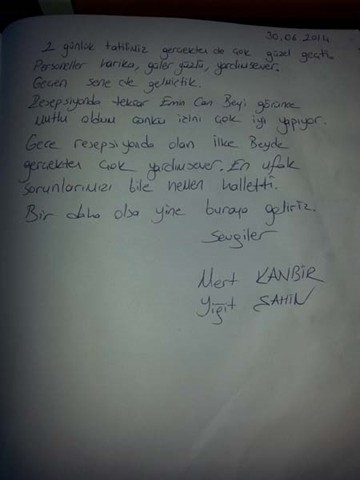 30.06.2014
2 günlük tatilimiz gerçekten de çok güzel geçti.
Personeller harika, güler yüzlü, yardımsever.
Geçen sene de gelmiştik.
Resepsiyonda tekrar Emin Can Beyi görünce
mutlu oldum çünkü işini çok iyi yapıyor.
Gece resepsiyonda olan İlke Beyde
gerçekten çok yardımsever. En ufak
sorunlarımızı bile hemen halletti.
Bir daha olsa yine buraya geliriz.
Sevgiler
Mert KANBİR
Yiğit ŞAHİN